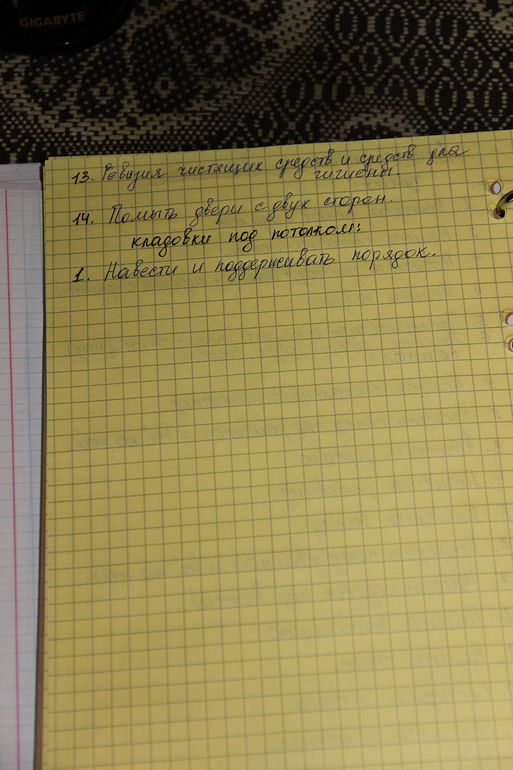 GIGABYTE
13. Ревизия чистящих средств и средств для
гигиены.
14. Помыть двери с двух сторон.
кладовки под потолком:
1. Навести и поддерживать порядок.